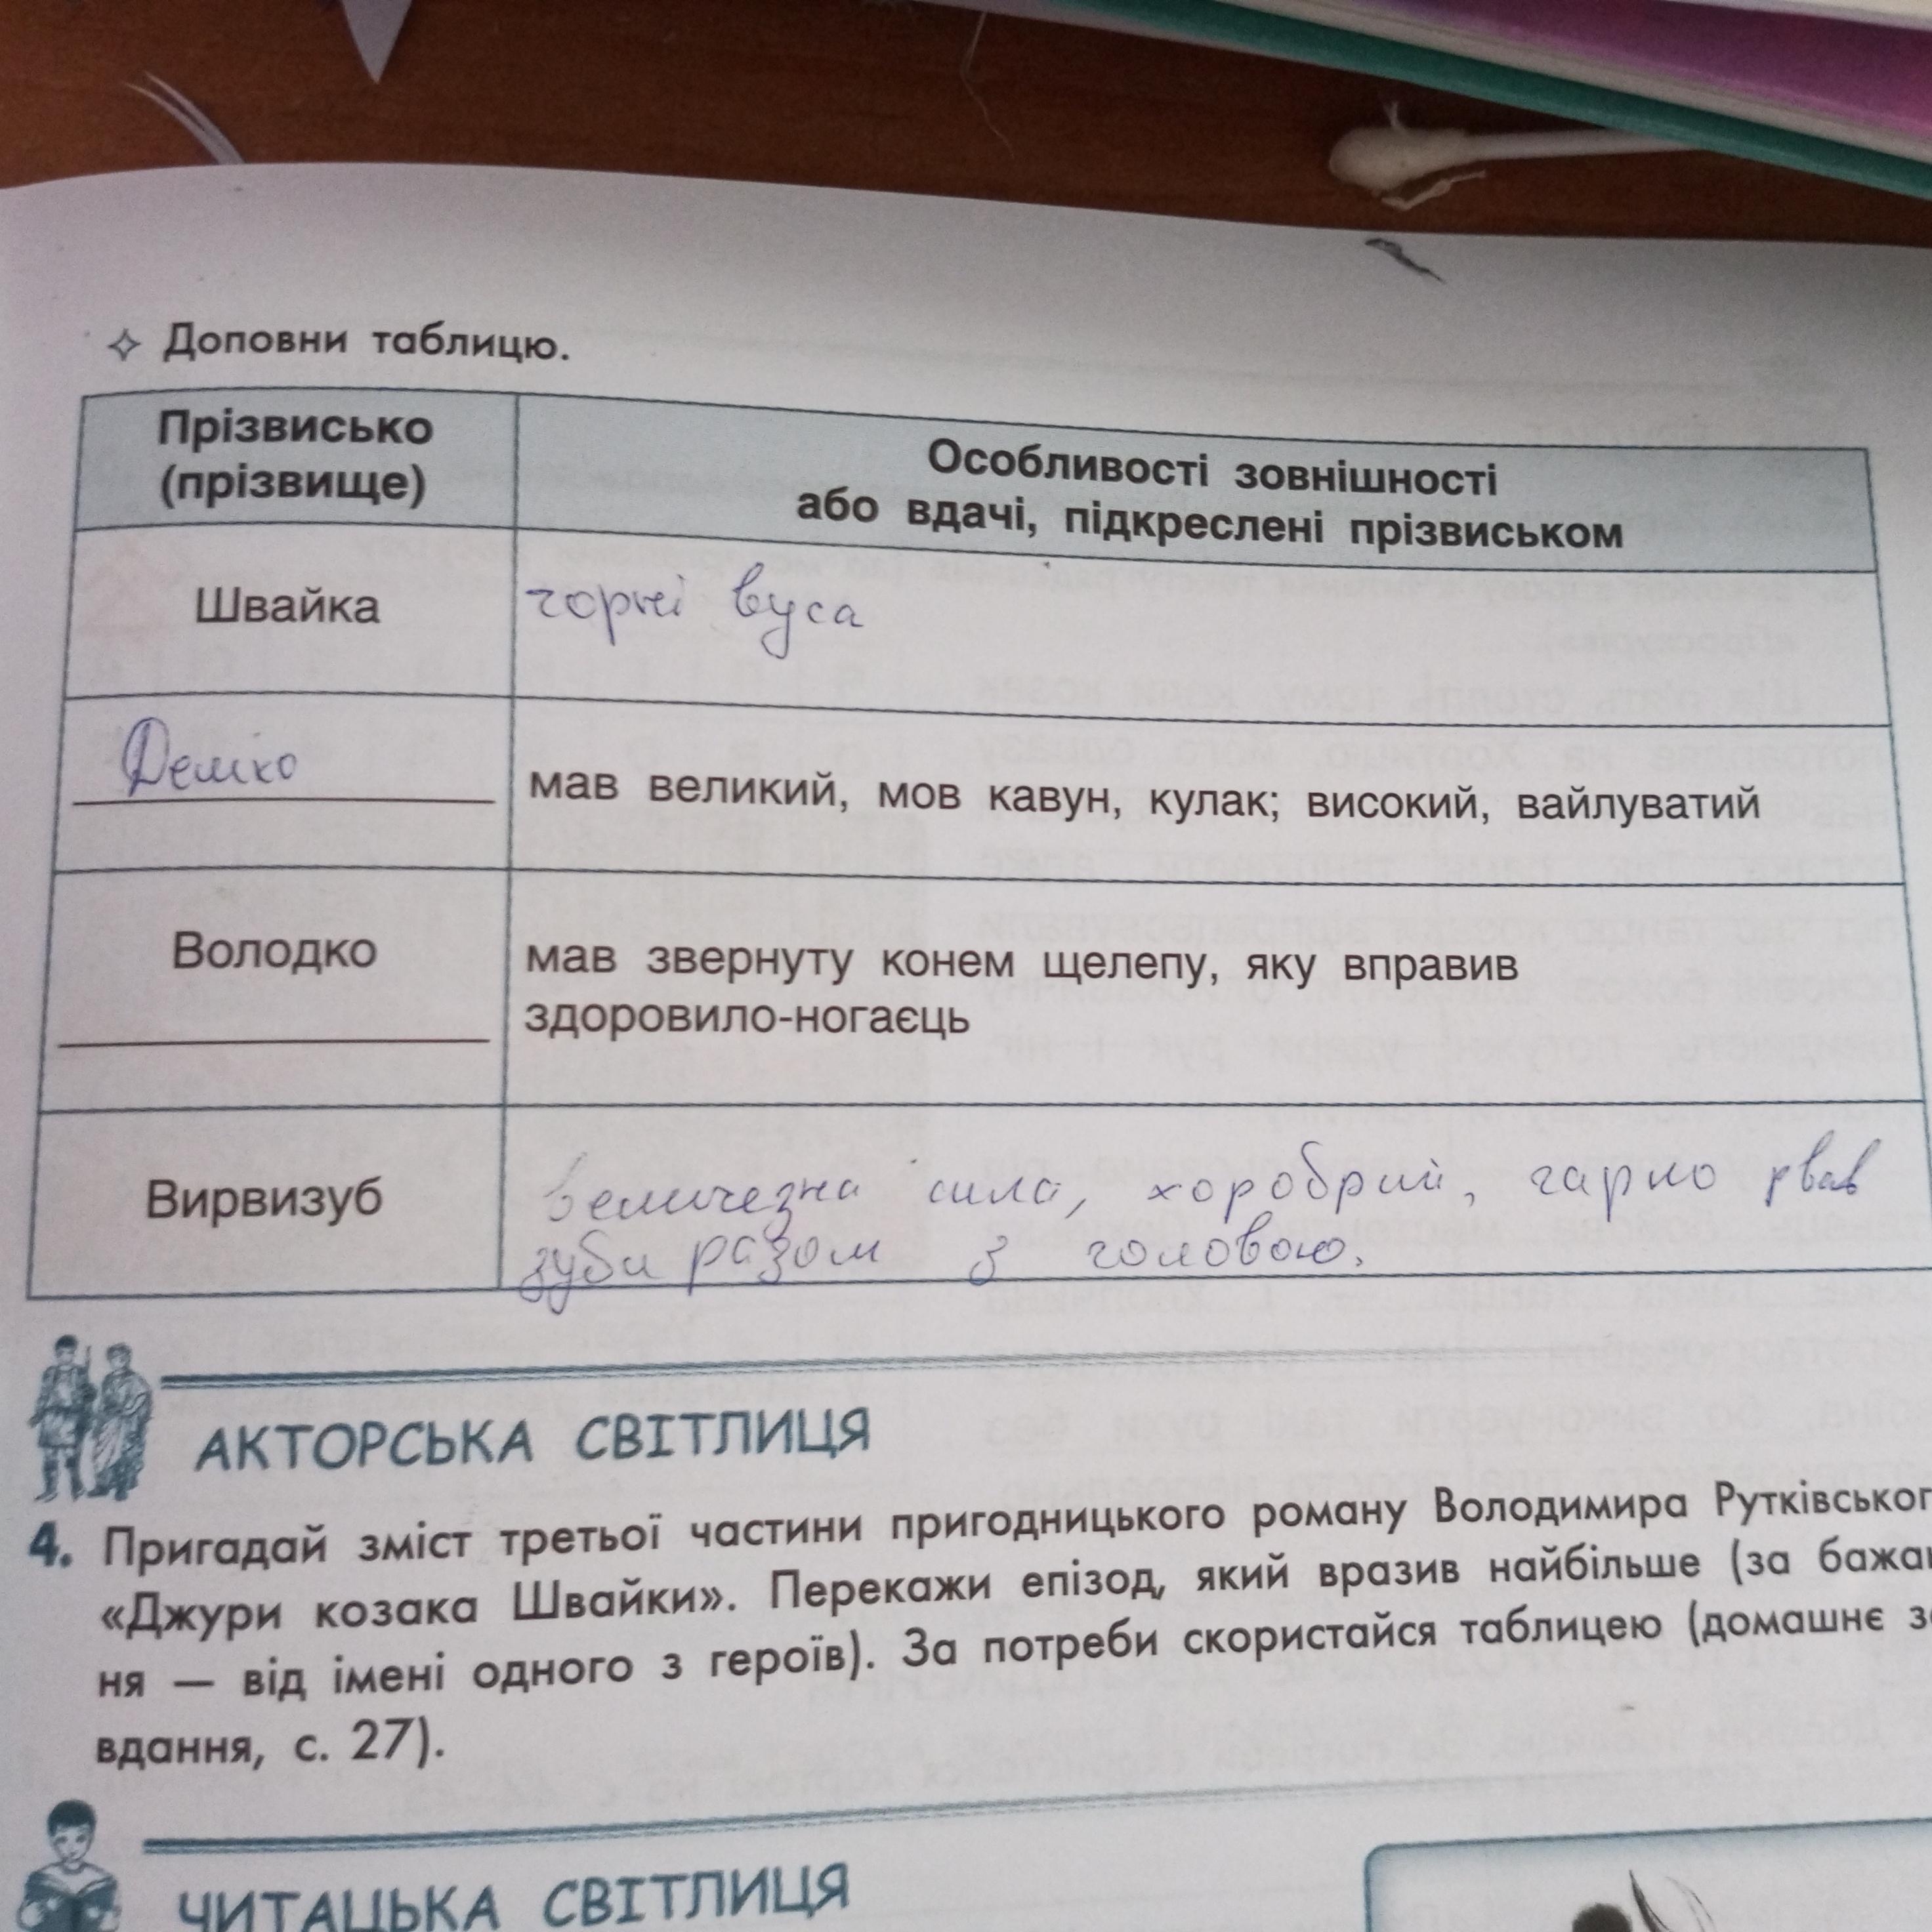 Доповни таблицю.
Прізвисько
(прізвище)
Особливості зовнішності
або вдачі, підкреслені прізвиськом
Швайка
чорні вуса
Демко
мав великий, мов кавун, кулак; високий, вайлуватий
Володко
мав звернуту конем щелепу, яку вправив
здоровило-ногаєць
Вирвизуб
величезна сила, хоробрий, гарно рвав
зуби разом з головою.
АКТОРСЬКА СВІТЛИЦЯ
4. Пригадай зміст третьої частини пригодницького роману Володимира Рутківськог
«Джури козака Швайки». Перекажи епізод, який вразив найбільше (за бажан
ня — від імені одного з героїв). За потреби скористайся таблицею (домашнє за
вдання, с. 27).
ЧИТАЦЬКА СВІТЛИЦЯ